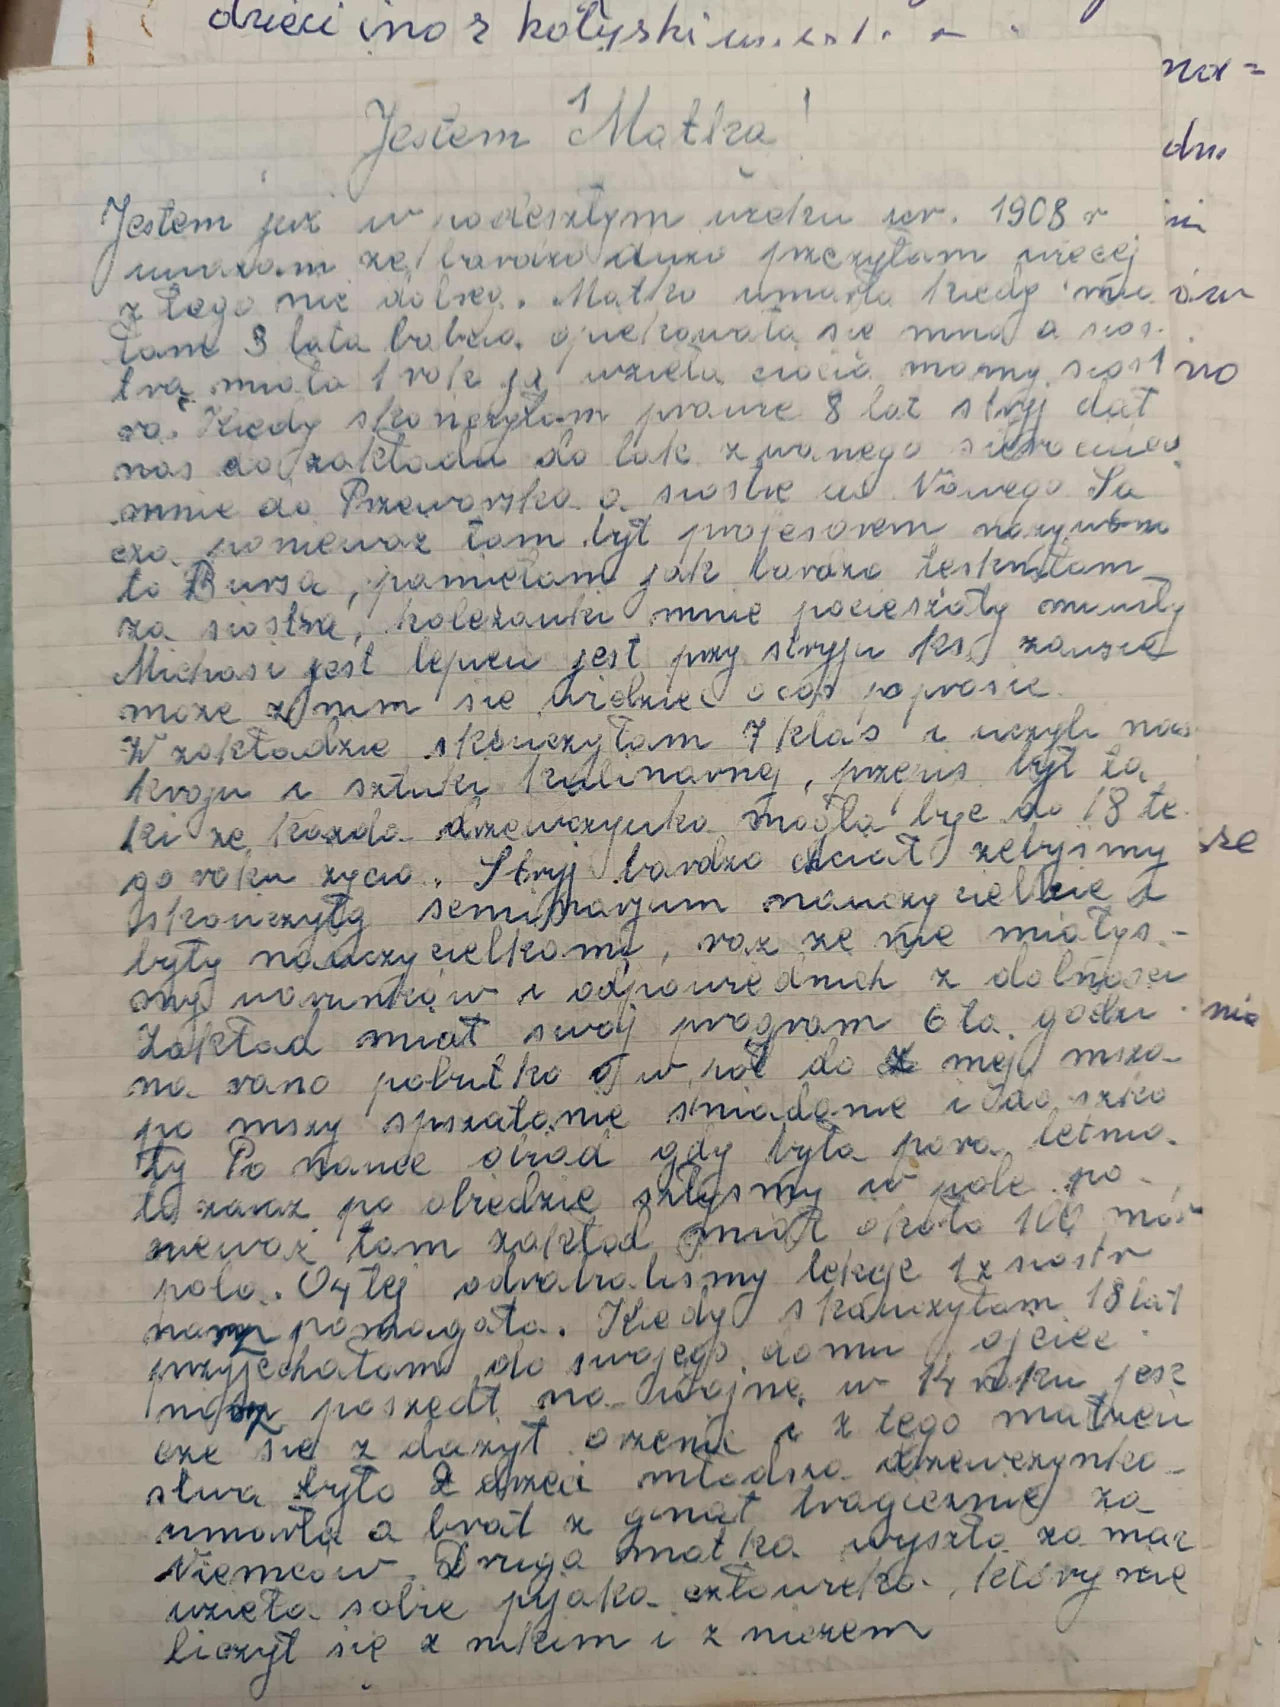 dzieci ino z kołyski
na=
du
Jestem Matka!
Jestem już w podeszłym wieku ur. 1908 r
uważam że bardzo dużo przeżyłam więcej
z tego nic dobreg. Matka umarła kiedy mia
łam 3 lata babcia opiekowała się mną a sios-
trą miała 1 rok ją wzieła ciocia mamy siost
ra. Kiedy skończyłam prawie 8 lat stryj dał
nas do zakładu do tak zwanego sierocińca
mnie do Przeworska a siostre do Nowego Są
cza ponieważ tam był profesorem nazywam
to Bursa, pamietam jak bardzo teskniłam
za siostrą, koleżanki mnie pocieszały muwiły
Michasi jest lepiej jest przy stryju ks. zawsze
może z nim sie widzieć o coś poprosić.
W zakładzie skończyłam 7 klas i uczyli nas
kroju i sztuki kulinarnej, przepis był ta
ki że każda dziewczynka mogła być do 18 te
go roku życia. Stryj bardzo chciał żebyśmy
skończyły seminarjum nauczycielskie i
były nauczycielkami, raz że nie miałyś-
my warunków i odpowiednich z dolności
Zakład miał swój program 6 ta godzi
na rano pobutka o w pół do 7 mej msza
po mszy spszątanie śniadanie i do szko
ły Po nauce obiad gdy była pora letnia
to zaraz po obiedzie szłyśmy w pole po-
nieważ tam zakład miał około 100 mór
pola. O 4 tej odrabialiśmy lekcje 1 z siostr
nam pomagała. Kiedy skończyłam 18 lat
przyjechałam do swojego domu ojciec
nasz poszedł na wojne w 14 roku jesz
cze się z dążył orzenić i z tego małżeń
stwa było 2 dzieci młodsza dziewczynka
umarła a brat z ginął tragicznie za
Niemców. Druga matka wyszła za mąż
wzieła sobie pijaka człowieka który nie
liczył się z nikim i z niczem
no
sze
nia